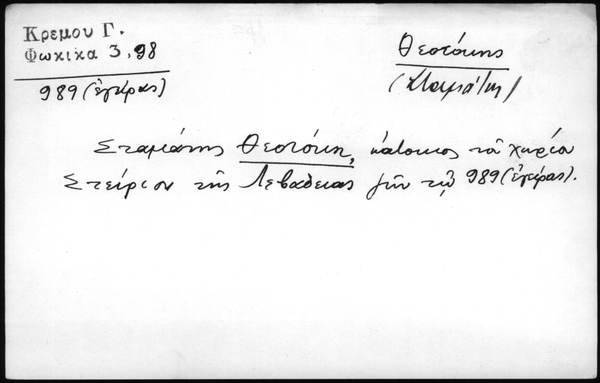 Κρεμου Γ.
Φωκικα 3, 98
989 (ἐγείρας)
Θεοτόκης
(Σταμάτης)
Σταμάτης Θεοτόκη, κάτοικος τοῦ χωρίου
Στείριον τῆς Λεβαδειας ζῶν τῷ 989 (ἐγείρας).